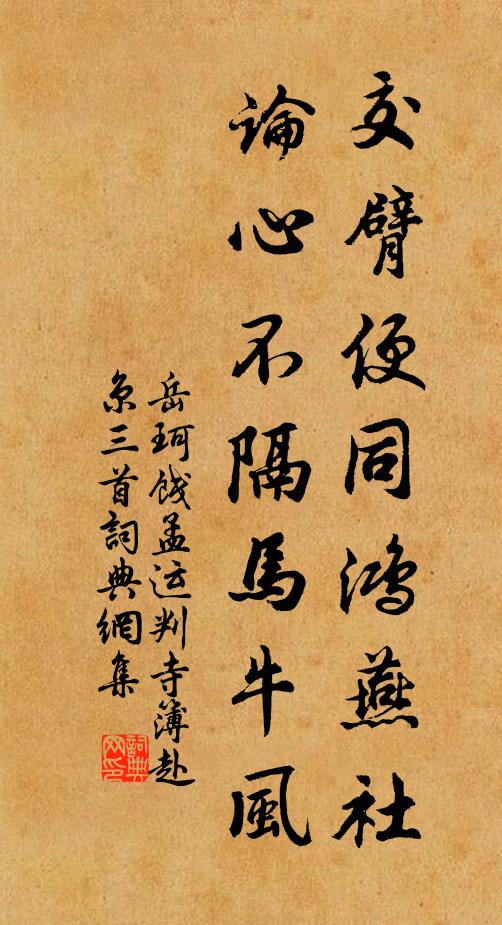 交臂便同鴻燕社
論心不隔馬牛風
岳珂餞孟运判寺簿赴
京三首詞典網集
詞典
网印